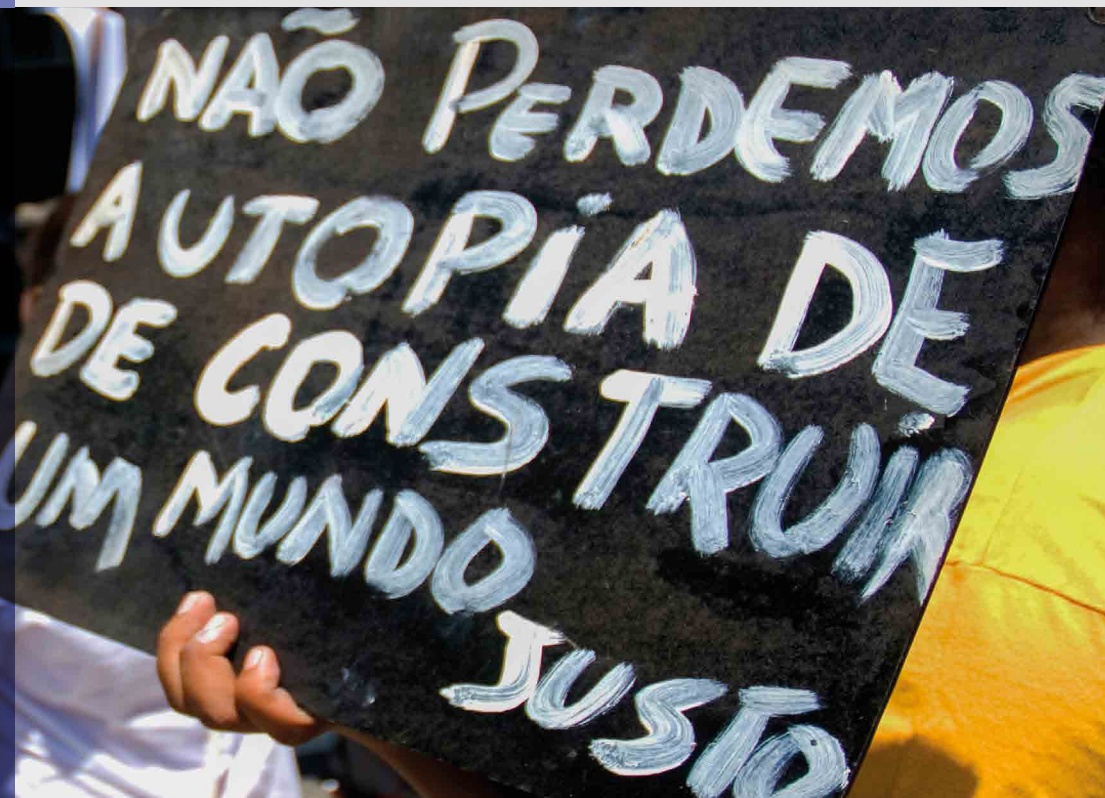 NÃO PERDEMOS
A UTOPiA DE
DE CONSTRUiR
UM MUNDO
JUSTO